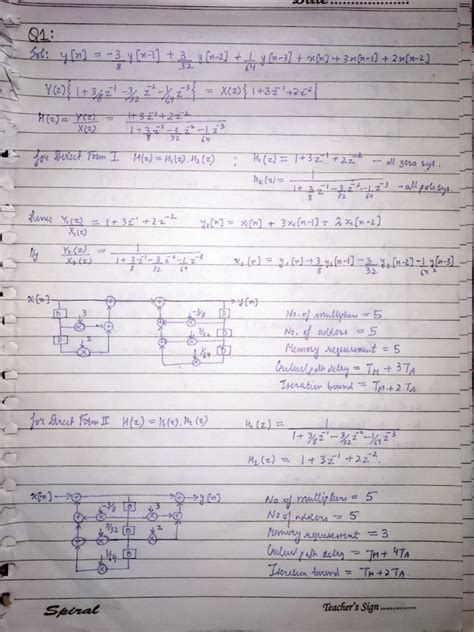 Date................
Q1:
Sol: y[n] = -3/8 y[n-1] + 3/32 y[n-2] + 1/64 y[n-3] + x[n] + 3x[n-1] + 2x[n-2]
Y(z){1 + 3/8 z⁻¹ - 3/32 z⁻² - 1/64 z⁻³} = X(z){1 + 3z⁻¹ + 2z⁻²}
H(z) = Y(z)/X(z) = (1 + 3z⁻¹ + 2z⁻²)/(1 + 3/8 z⁻¹ - 3/32 z⁻² - 1/64 z⁻³)
for Direct Form I H(z) = H₁(z).H₂(z) ; H₁(z) = 1 + 3z⁻¹ + 2z⁻² - all zero sys.
H₂(z) = 1/(1 + 3/8 z⁻¹ - 3/32 z⁻² - 1/64 z⁻³) - all pole sys.
hence Y₁(z)/X₁(z) = 1 + 3z⁻¹ + 2z⁻² y₁[n] = x₁[n] + 3x₁[n-1] + 2x₁[n-2]
By Y₂(z)/X₂(z) = 1/(1 + 3/8 z⁻¹ - 3/32 z⁻² - 1/64 z⁻³) x₂[n] = y₂[n] + 3/8 y₂[n-1] - 3/32 y₂[n-2] - 1/64 y₂[n-3]
x[n] + + y[n]
D 3 + -3/8 D
D 2 + 3/32 D
1/64 D
No. of multipliers = 5
No. of adders = 5
Memory requirement = 5
Critical path delay = TM + 3TA
Iteration bound = TM + 2TA
for Direct Form II H(z) = H₁(z).H₂(z) H₁(z) = 1/(1 + 3/8 z⁻¹ - 3/32 z⁻² - 1/64 z⁻³)
H₂(z) = 1 + 3z⁻¹ + 2z⁻².
x[n] + + y[n]
+ -3/8 D 3 +
+ 3/32 D 2
1/64 D
No of multipliers = 5
No of adders = 5
Memory requirement = 3
Critical path delay = TM + 4TA
Iteration bound = TM + 2TA
Spiral
Teacher's Sign ...............